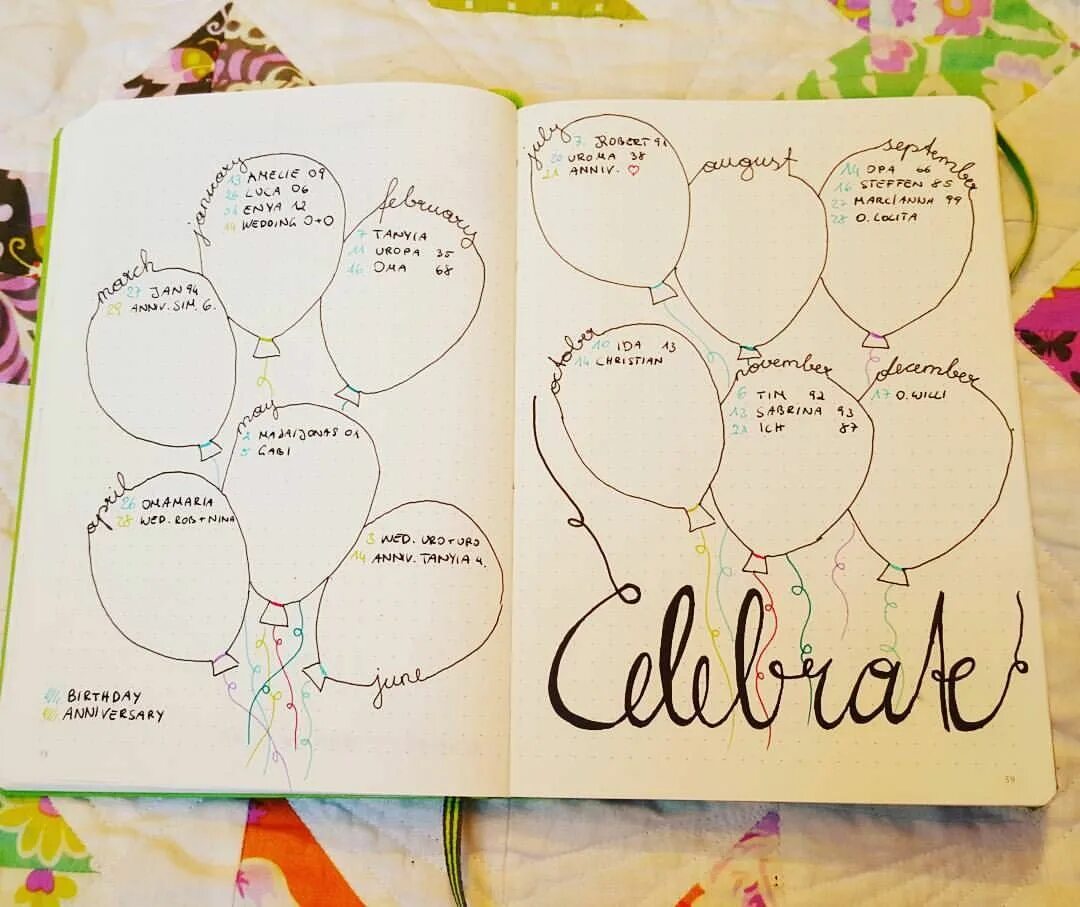 january
13 AMELIE 09
26 LUCA 06
31 ENYA 12
14 WEDDING J+O
february
7 TANYIA
11 UROPA 35
16 OMA 68
march
27 JAN 94
29 ANNIV. SIM. G.
may
2 JONAS 01
5 GABI
april
26 OMAMARIA
28 WED. ROB+NINA
3 WED. URO+URO
14 ANNIV. TANYIA 4.
june
BIRTHDAY
ANNIVERSARY
july
7. ROBERT 91
20 UROMA 38
21 ANNIV. ♡
august
september
14 OPA 66
16 STEFFEN 85
27 MARC/ANNA 99
28 O. LOLITA
october
10 IDA 13
14 CHRISTIAN
november
6 TIM 92
13 SABRINA 93
21 ICH 87
december
17 O. WILLI
Celebrate
59